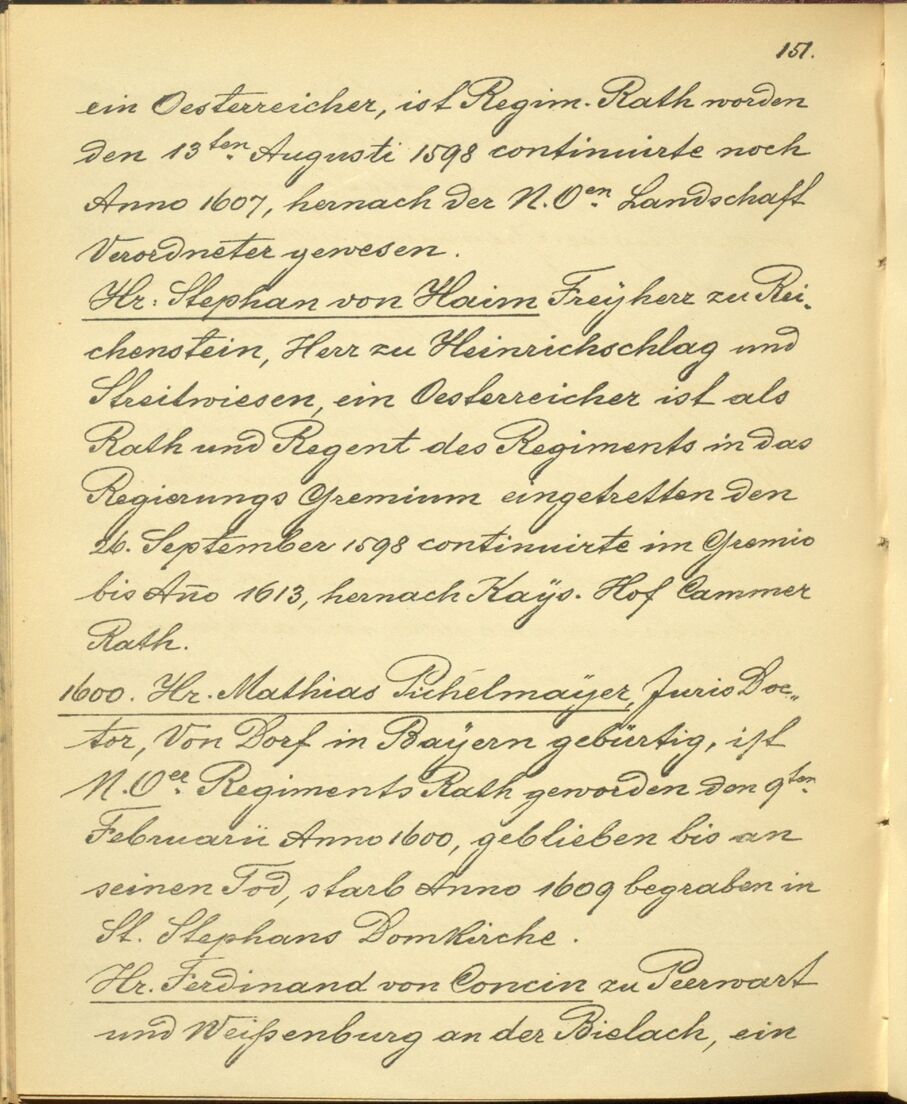 151.
ein Oesterreicher, ist Regim. Rath worden
den 13ten. Augusti 1598 continuirte noch
Anno 1607, hernach der N. Oen. Landschaft
Verordneter gewesen.
Hr: Stephan von Haim Freÿherr zu Rei-
chenstein, Herr zu Heinrichschlag und
Streitwiesen, ein Oesterreicher ist als
Rath und Regent des Regiments in das
Regierungs Gremium eingetretten den
26. September 1598 continuirte im Gremio
bis Año 1613, hernach Kaÿs. Hof Cammer
Rath.
1600. Hr. Mathias Püchelmaÿer, Juris Doc„
tor, Von Dorf in Baÿern gebürtig, ist
N. Oer. Regiments Rath geworden den 9ten.
Februarii Anno 1600, geblieben bis an
seinen Tod, starb Anno 1609 begraben in
St. Stephans Domkirche.
Hr. Ferdinand von Concin zu Peerwart
und Weißenburg an der Bielach, ein